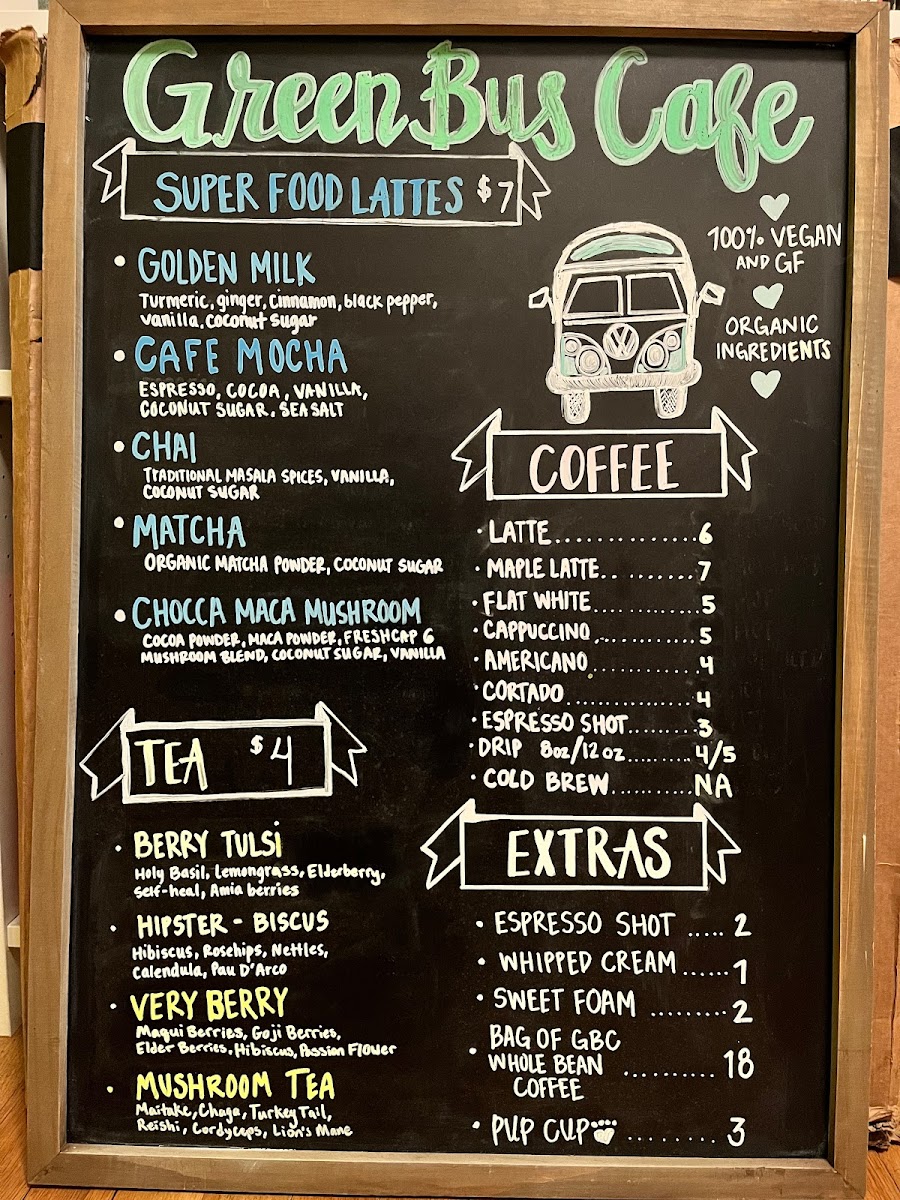 Green Bus Cafe
SUPER FOOD LATTES $7
• GOLDEN MILK
Turmeric, ginger, cinnamon, black pepper,
vanilla, coconut sugar
• CAFE MOCHA
ESPRESSO, COCOA, VANILLA,
COCONUT SUGAR, SEA SALT
• CHAI
TRADITIONAL MASALA SPICES, VANILLA,
COCONUT SUGAR
• MATCHA
ORGANIC MATCHA POWDER, COCONUT SUGAR
• CHOCCA MACA MUSHROOM
COCOA POWDER, MACA POWDER, FRESHCAP 6
MUSHROOM BLEND, COCONUT SUGAR, VANILLA
TEA $4
• BERRY TULSI
Holy Basil, Lemongrass, Elderberry,
self-heal, Amla berries
• HIPSTER - BISCUS
Hibiscus, Rosehips, Nettles,
Calendula, Pau D'Arco
• VERY BERRY
Maqui Berries, Goji Berries,
Elder Berries, Hibiscus, Passion Flower
• MUSHROOM TEA
Maitake, Chaga, Turkey Tail,
Reishi, Cordyceps, Lion's Mane
100% VEGAN
AND GF
ORGANIC
INGREDIENTS
VW
COFFEE
• LATTE.............. 6
• MAPLE LATTE.. ........ 7
• FLAT WHITE............ 5
• CAPPUCCINO............ 5
• AMERICANO............ 4
• CORTADO............... 4
• ESPRESSO SHOT........ 3
• DRIP 8oz/12oz......... 4/5
• COLD BREW.......... NA
EXTRAS
• ESPRESSO SHOT ..... 2
• WHIPPED CREAM ...... 1
• SWEET FOAM ......... 2
• BAG OF GBC
WHOLE BEAN .......... 18
COFFEE
• PUP CUP ........ 3